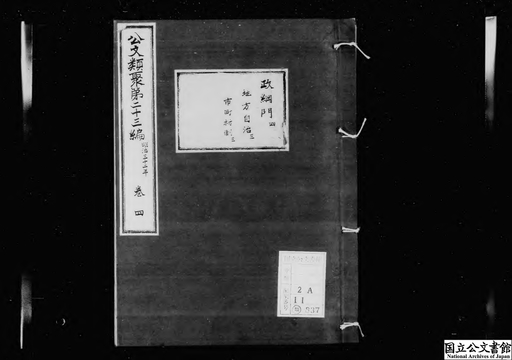 公文類聚第二十三編 明治三十二年 巻四
政綱門四
地方自治三
市町村制三
2 A
11
837
国立公文書館
National Archives of Japan